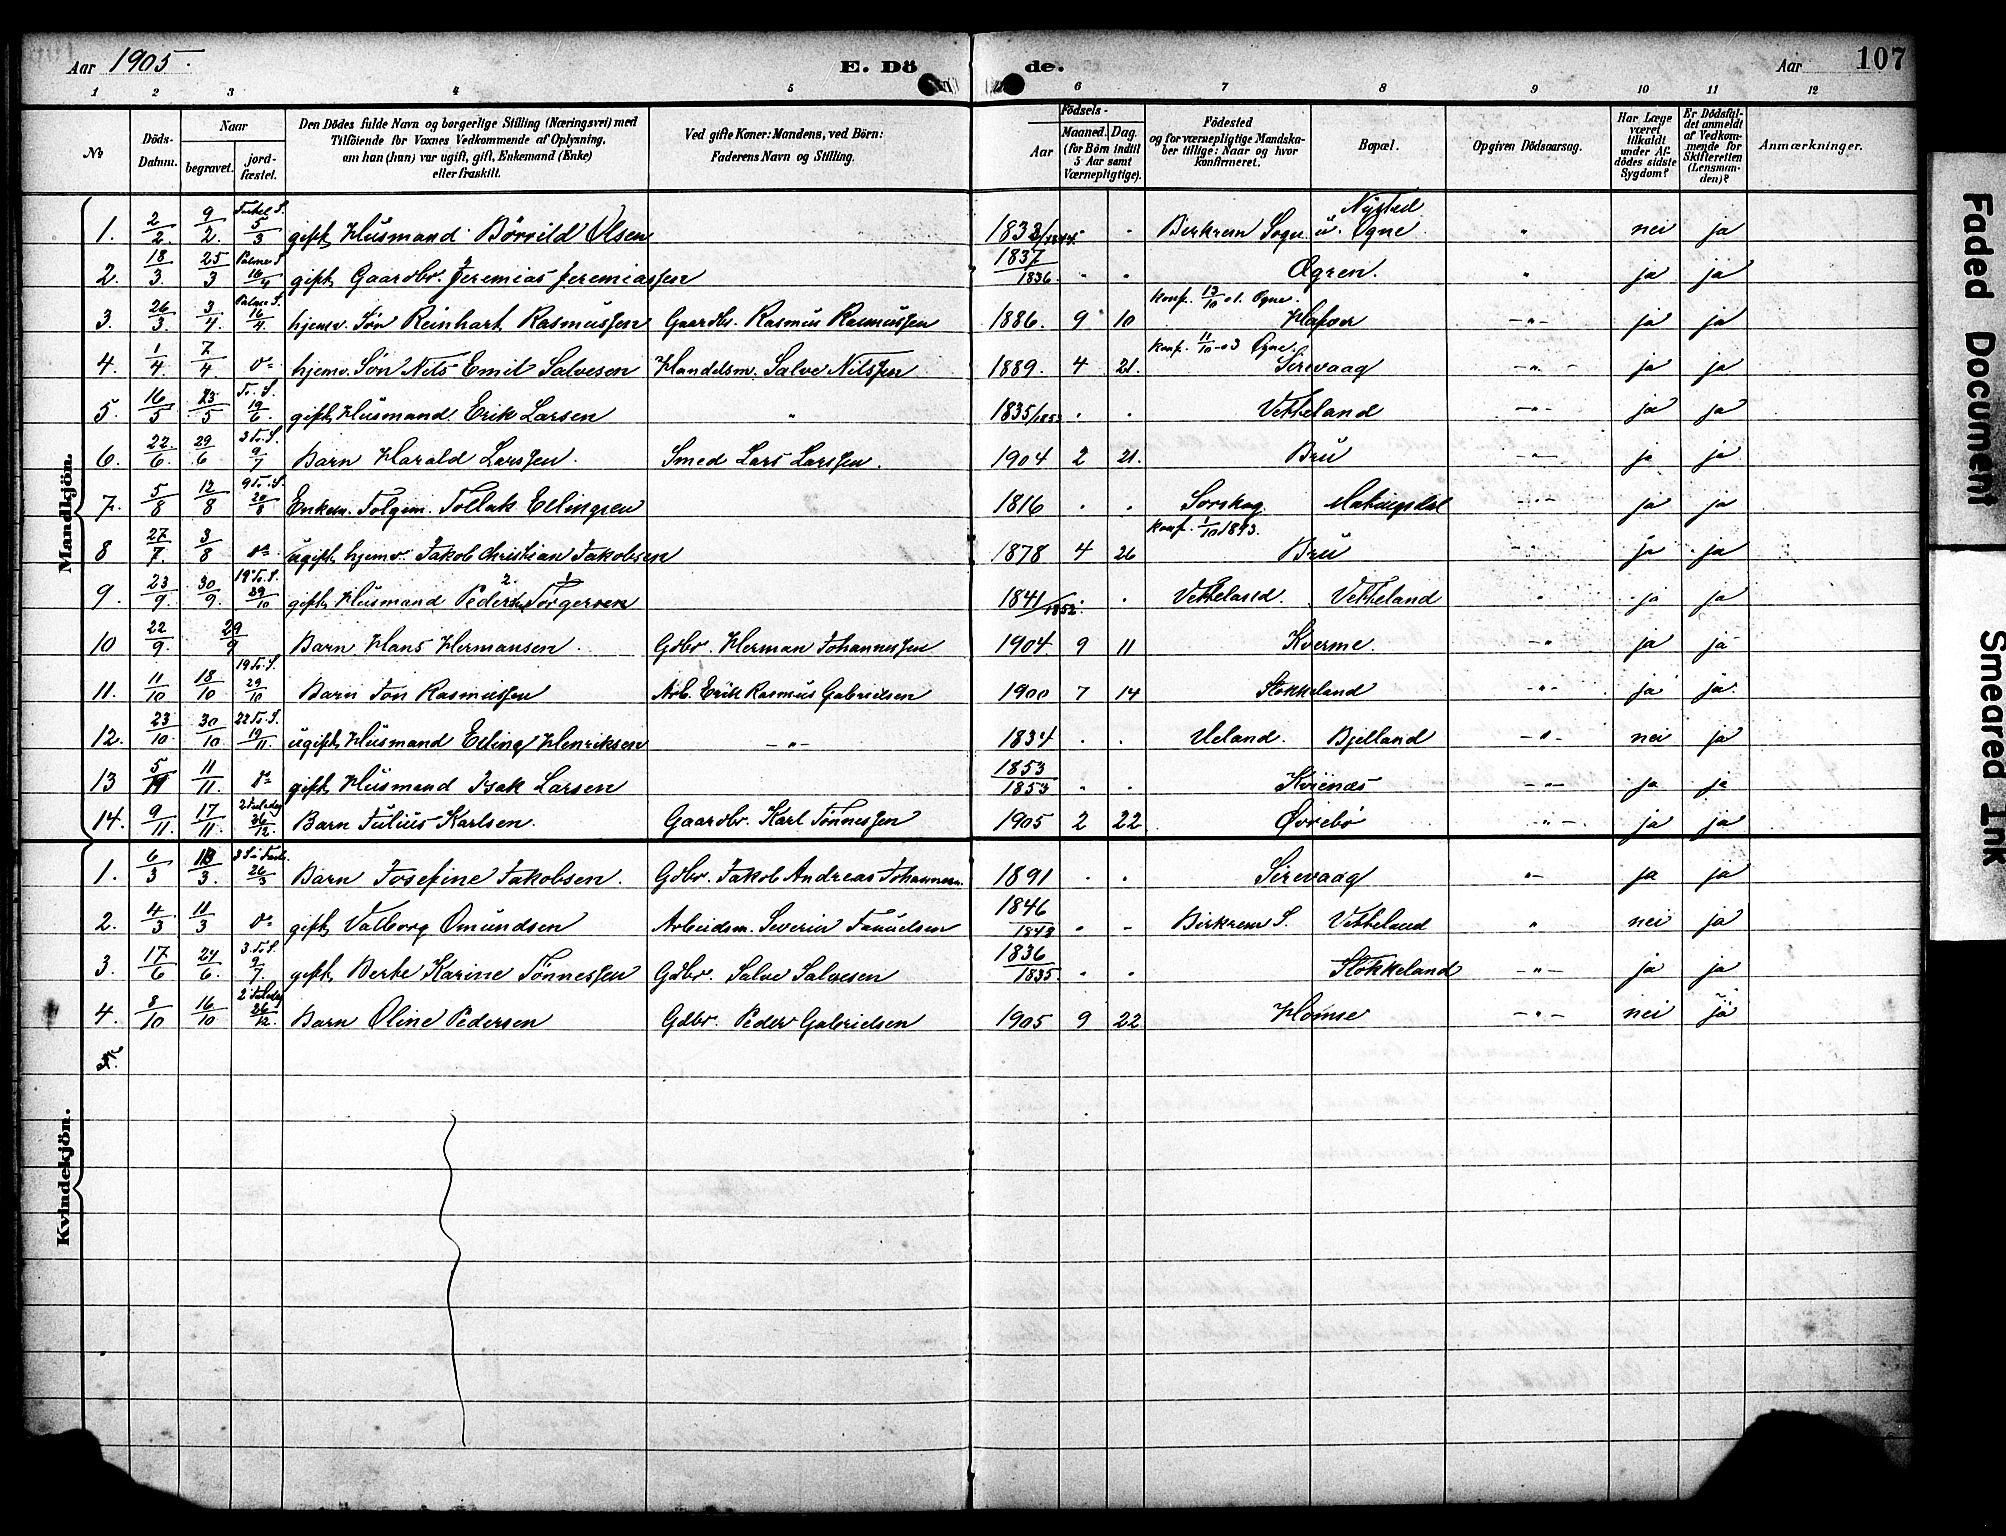 Aar 1905. E. Dö de. Aar 107
1 2 3 4 5 6 7 8 9 10 11 12
No
Döds-Datum.
Naar
begravet. jord-fæstet.
Den Dödes fulde Navn og borgerlige Stilling (Næringsvei) med
Tilföiende for Voxnes Vedkommende af Oplysning,
om han (hun) var ugift, gift, Enkemand (Enke)
eller fraskilt.
Ved gifte Koner: Mandens, ved Börn:
Faderens Navn og Stilling.
Födsels-
Aar
Maaned. Dag.
(for Börn indtil
5 Aar samt
Værnepligtige).
Födested
og for værnepligtige Mandska-
ber tillige: Naar og hvor
konfirmeret.
Bopæl.
Opgiven Dödsaarsag.
Har Læge
været
tilkaldt
under Af-
dödes sidste
Sygdom?
Er Dödsfal-
det anmeldt
af Vedkom-
mende for
Skifteretten
(Lensman-
den)?
Anmærkninger.
Mandkjön.
1. 2/2. 9/2. 5/3 gift Husmand Børrild Olsen Birkrem Sogn Nystad Ogne " nei ja
2. 18/3. 25/3 Palmes S. 16/4 gift Gaardbr. Jeremias Jeremiassen 1837/1836. " " Ogren. " ja ja
3. 26/3. 3/4 Palmes S. 16/4 hjemv. Søn Reinhart Rasmussen Gaardbr. Rasmus Rasmussen 1886. 9 10 konf. 13/10 01. Ogne. -"- ja ja
4. 1/4. 7/4 do hjemv. Søn Nils Emil Salvesen Handelsm. Salve Nilssen 1889. 4 21. konf. 11/10-03 Ogne. Sirevaag -"- ja ja
5. 16/5 23/5 Tr. S. 19/6. gift Husmand Erik Larsen " 1835/1853 " " Vetteland -"- ja ja
6. 22/6. 29/6 3 Tr. S. 9/7 Barn Harald Larssen. Smed Lars Larssen. 1904 2 21. Bru -"- ja ja
7. 5/8 12/8 9 Tr. S. 20/8 Enkem. Tollak Ellingsen 1816 " " Sorskog Matingsdal -"- ja ja
8 27/7. 3/8 do ugift hjemv. Jakob Christian Jakobsen 1878 4 26 konf. 1/10 1893. Bru -"- ja ja
9. 23/9. 30/9. 19 Tr. S. 29/10 gift Husmand Peder Torgersen 1841/1852 " " Vetteland. Vetteland " ja ja
10 22/9. 29/9 Barn Hans Hermansen. Gdbr. Herman Johannessen 1904 9 11 Kverme. -"- ja ja
11. 11/10 18/10 19 Tr. S. 29/10 Barn Jon Rasmussen Arb. Erik Rasmus Gabrielsen 1900 7 14 Stokkeland -"- ja ja.
12. 23/10. 30/10 22 Tr. S. 19/11. ugift Husmand Elling Henriksen -"- 1834 " " Ueland. Bjelland -"- nei ja
13 5/11 11/11. do gift Husmand Isak Larsen 1853/1853 " " -"- ja ja
14. 9/11. 17/11. 2 Juledag 26/12. Barn Julius Karlsen. Gaardbr. Karl Tønnessen 1905 2 22 Øvrebø -"- ja ja
Kvindekjön.
1. 6/3 13/3. 26/3 Barn Josefine Jakobsen. Gdbr. Jakob Andreas Johannesen. 1891 " " Sirevaag "- ja ja
2. 4/3 11/3 do gift Valborg Omundsen Arbeidsm. Severin 1846/1843 " " Birkrem S. Vetteland " nei ja
3. 17/6 24/6. 3. Tr. S. 9/7. gift Berte Karine Tønnessen Gdbr. Salve Salvesen 1836/1835. " " Stokkeland -"- ja ja
4. 8/10 16/10 2 Juledag 26/12. Barn Oline Pedersen Gdbr. Peder Gabrielsen 1905 9 22 Homse -"- nei ja
5.
Faded Document
Smeared Ink